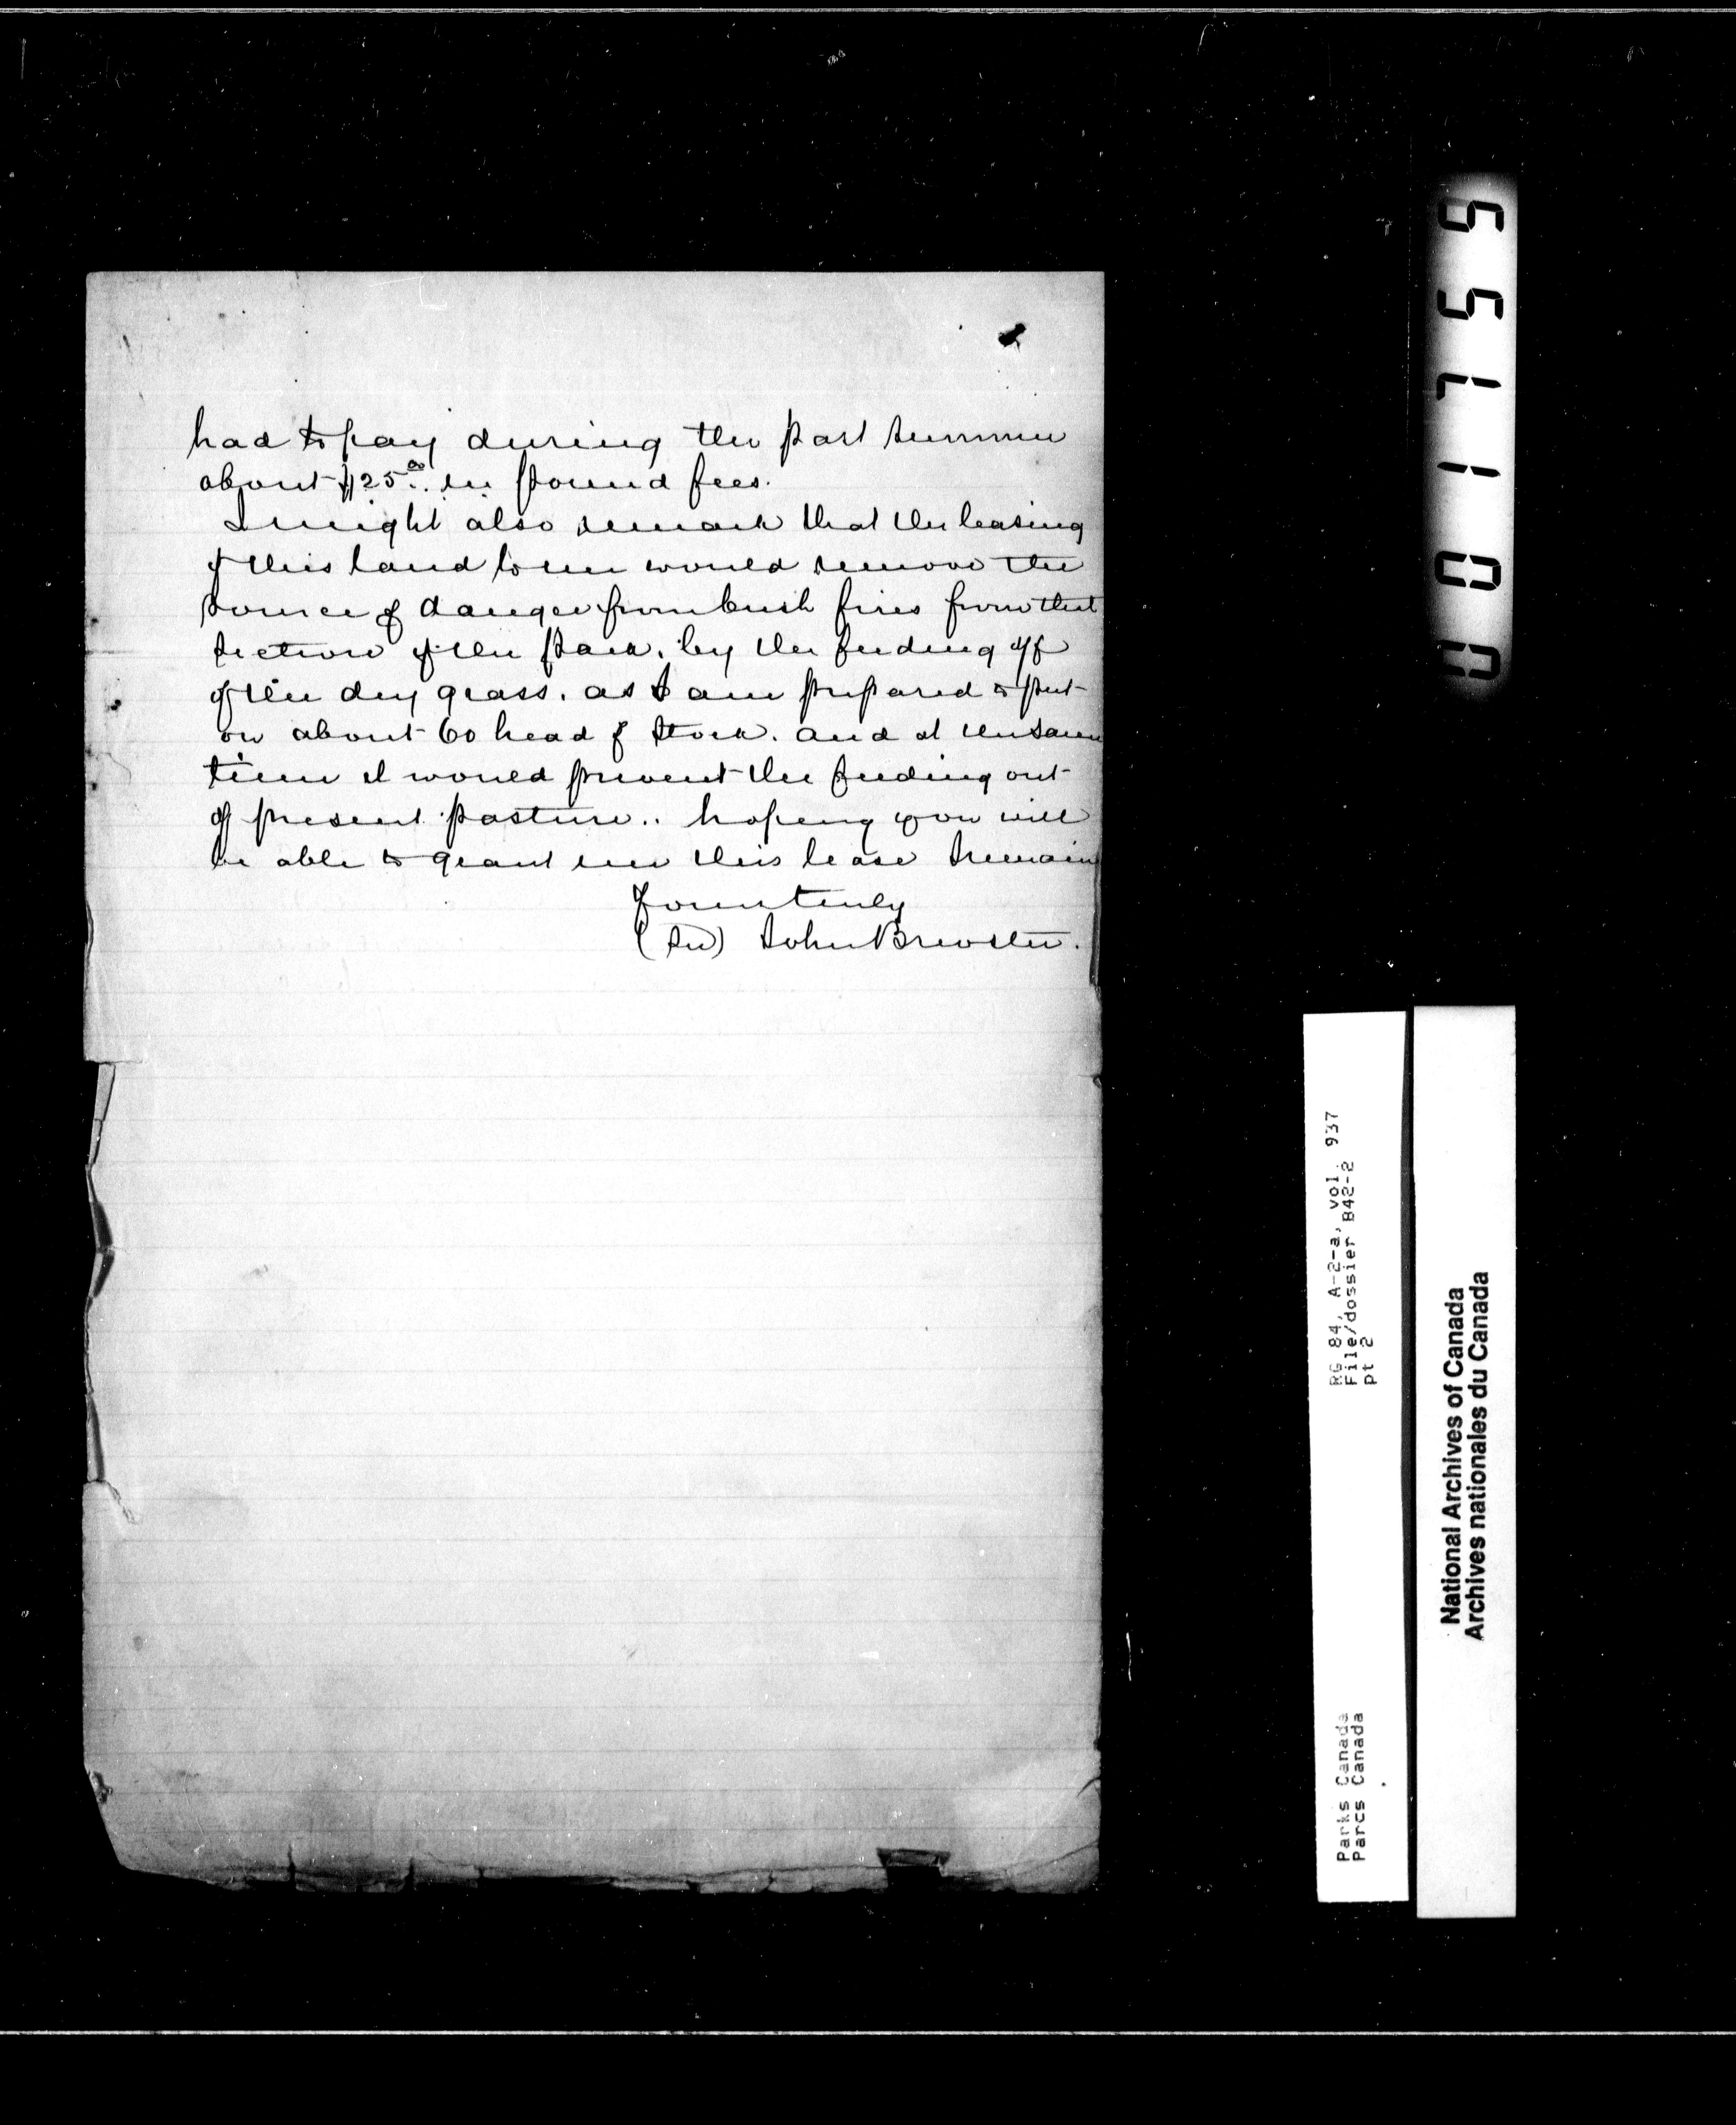 had to pay during the past summer
about $25.00 in pound fees.
I might also remark that the leasing
of this land to me would remove the
source of danger from bush fires from that
section of the park. by the feeding off
of the dry grass. as I am prepared to put
on about 60 head of stock. and at the same
time it would prevent the feeding out
of present pasture.. hoping you will
be able to grant me this lease I remain
Yours truly
(Sd) John Brewster.
001755
RG 84, A-2-a, vol. 937
File/dossier B42-2
pt 2
Parks Canada
Parcs Canada
National Archives of Canada
Archives nationales du Canada